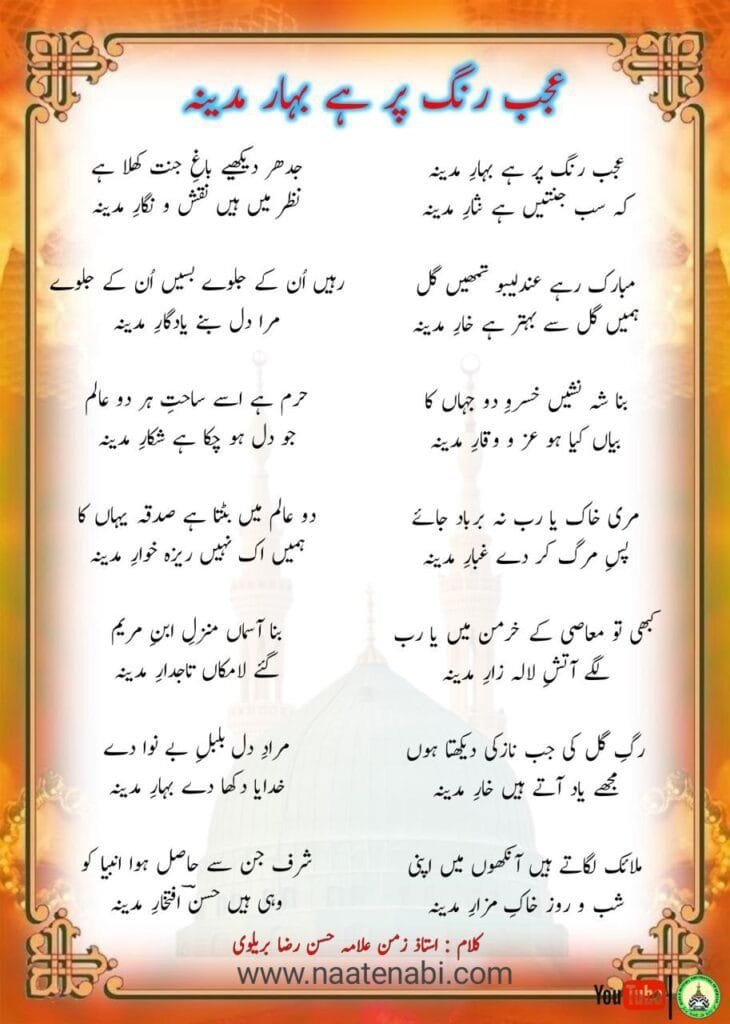 عجب رنگ پر ہے بہار مدینہ
عجب رنگ پر ہے بہارِ مدینہ
کہ سب جنتیں ہے نثارِ مدینہ
مبارک رہے عندلیبو تمھیں گل
ہمیں گل سے بہتر ہے خارِ مدینہ
بنا شہ نشیں خسروِ دو جہاں کا
بیاں کیا ہو عز و وقارِ مدینہ
مری خاک یا رب نہ برباد جائے
پسِ مرگ کر دے غبارِ مدینہ
کبھی تو معاصی کے خرمن میں یا رب
لگے آتشِ لالہ زارِ مدینہ
رگِ گل کی جب نازکی دیکھتا ہوں
مجھے یاد آتے ہیں خارِ مدینہ
ملائک لگاتے ہیں آنکھوں میں اپنی
شب و روز خاکِ مزارِ مدینہ
جدھر دیکھیے باغِ جنت کھلا ہے
نظر میں ہیں نقش و نگارِ مدینہ
رہیں اُن کے جلوے بسیں اُن کے جلوے
مرا دل بنے یادگارِ مدینہ
حرم ہے اسے ساحتِ ہر دو عالم
جو دل ہو چکا ہے شکارِ مدینہ
دو عالم میں بٹتا ہے صدقہ یہاں کا
ہمیں اک نہیں ریزہ خوارِ مدینہ
بنا آسماں منزلِ ابنِ مریم
گئے لامکاں تاجدارِ مدینہ
مرادِ دل بلبلِ بے نوا دے
خدایا دکھا دے بہارِ مدینہ
شرف جن سے حاصل ہوا انبیا کو
وہی ہیں حسنؔ افتخارِ مدینہ
کلام : استاذ زمن علامہ حسن رضا بریلوی
www.naatenabi.com
YouTube